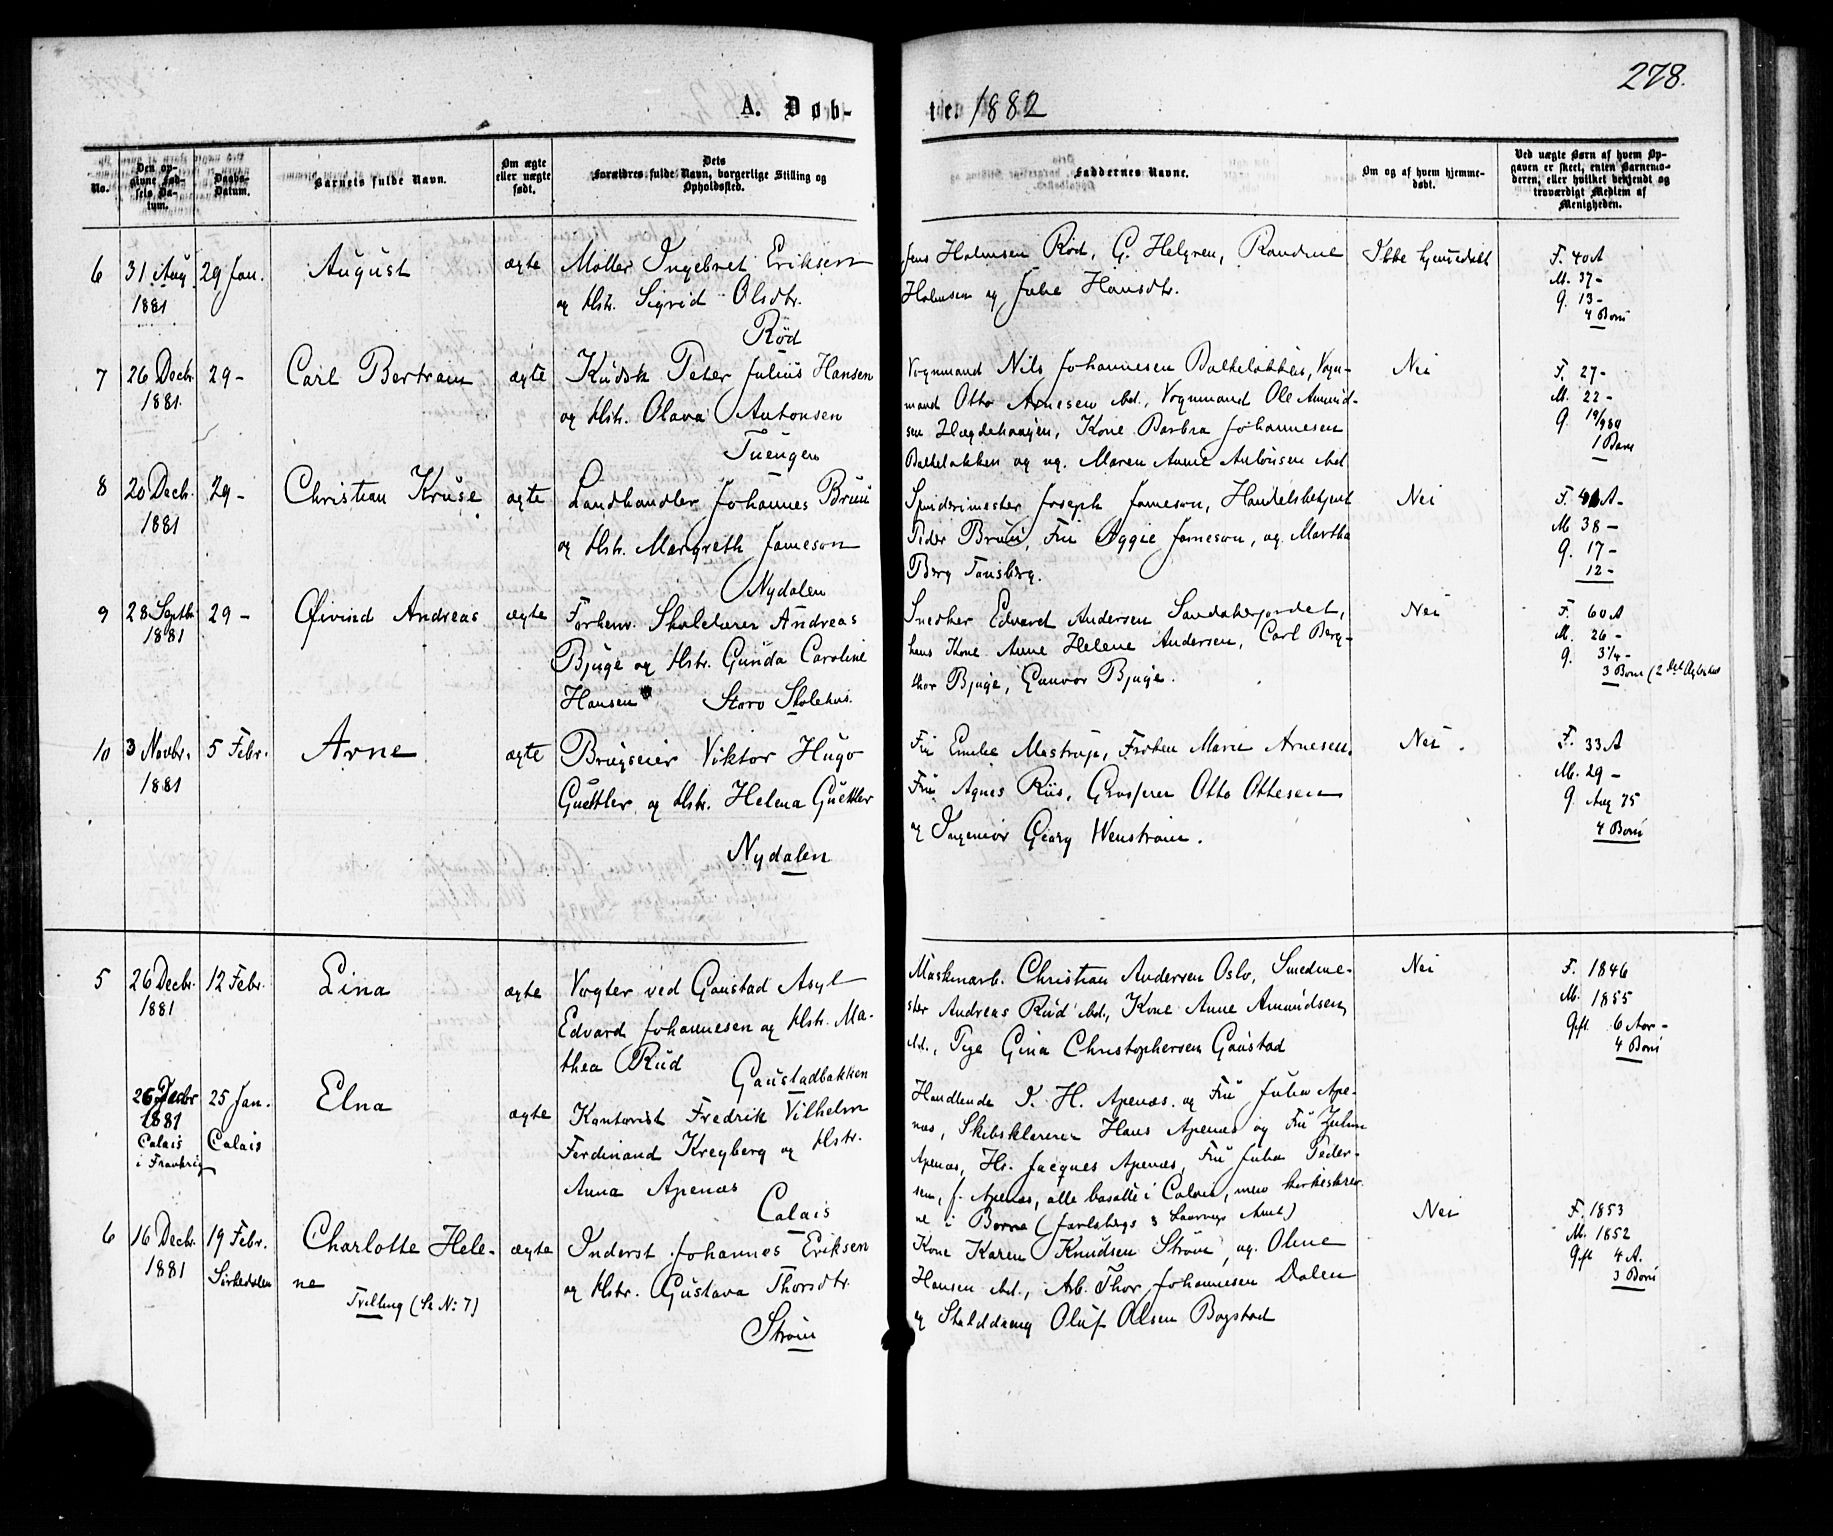 278.
A. Døb-
te. 1882
No.
Den op-
givne Fød-
sels Da-
tum.
Daabs-
Datum.
Barnets fulde Navn.
Om ægte
eller uægte
født.
Dets
Forældres fulde Navn, borgerlige Stilling og
Opholdssted.
Faddernes Navne.
Om og af hvem hjemme-
døbt.
Ved uægte Børn af hvem Op-
gaven er skeet, enten Barnemo-
deren, eller hvilket bekjendt og
troværdigt Medlem af
Menigheden.
6 31 Aug 29 Jan. August ægte Møller Ingebret Eriksen
1881 og Hstr. Sigrid Olsdtr.
Rød
Jens Holmsen Rød, G. Helgren, Randine
Holmsen og Julie Hansdtr.
Ikke hjemmedøbt
F. 40 A
M. 37 -
G. 13 -
4 Børn
7 26 Decbr 29 - Carl Bertram ægte Kudsk Peter Julius Hansen
1881. og Hstr. Olava Antonsen
Tuengen
Vognmand Nils Johannesen Balkeløkken, Vogn-
mand Otto Arnesen ibd., Vognmand Ole Amund-
sen Hægdehaugen, Kone Barbra Johannesen
Balkeløkken og ug. Maren Anne Antonsen ibd
Nei
F. 27 -
M. 22 -
G.
1 Barn
8 20 Decb. 29 - Christian Kruse ægte Landhandler Johannes Bruu
1881 og Hstr. Margreth Jameson
Nydalen
Spinderimester Joseph Jameson, Handelsbetjent
Peder Bruu, Fru Aggie Jameson, og Martha
Berg Tønsberg.
Nei
M. 38 -
G. 17 -
12 -
9 28 Septb. 29 - Øivind Andreas ægte Forhenv. Skolelærer Andreas
1881 Bjuge og Hstr. Gunda Caroline
Hansen Storo Skolehus.
Snedker Edvard Andersen Sandakerjordet,
hans Kone Anne Helene Andersen, Carl Berg-
thor Bjuge, Gunvor Bjuge.
Nei
F. 60 A
M. 26 -
G. 3¼ -
3 Børn
10 3 Novbr. 5 Febr. Arne ægte Brugseier Viktor Hugo
1881 Guettler og Hstr. Helena Guettler
Nydalen
Fru Emilie Mostrup, Frøken Marie Arnesen,
Fru Agnes Riis, Grosserer Otto Ottesen
og Ingeniør Georg Wenstrøm.
Nei.
F. 33 A
M. 29 -
G. Aug 75
4 Børn
5 26 Decbr. 12 Febr. Lina ægte Vogter ved Gaustad Asyl
1881 Edvard Johannesen og Hstr. Ma-
thea Rud
Gaustadbakken
Maskinarb. Christian Andersen Oslo, Smedme-
ster Andreas Rud ibd., Kone Anne Amundsen
ibd., Pige Gina Christophersen Gaustad
Nei
F. 1846
M. 1855
Gift 6 Aar -
4 Børn
26 Decbr 25 Jan. Elna ægte Kontorist Fredrik Vilhelm
1881 Calais Ferdinand Kreyberg og Hstr.
Calais Anna Apenæs
i Frankrig Calais
Handlende I. H. Apenæs og Fru Julia Ape-
næs, Skibsklarerer Hans Apenæs og Fru
Apenæs, Hr. Jacques Apenæs, Fru Julia Peder-
sen, f. Apenæs, alle bosatte i Calais, men
i Borre (Jarlsbergs & Laurvigs Amt)
6 16 Decb. 19 Febr. Charlotte Hele- ægte Inderst Johannes Eriksen
1881 Sørkedalen ne og Hstr. Gustava Thorsdtr.
Tvilling (Se N: 7) Strøm
Kone Karen Knudsen Strøm, ug. Oline
Hansen ibd., Arb. Thor Johannesen Dalen
og Stalddreng Oluf Olsen Bogstad
Nei
F. 1853
M. 1852
Gift 4 A.
3 Børn